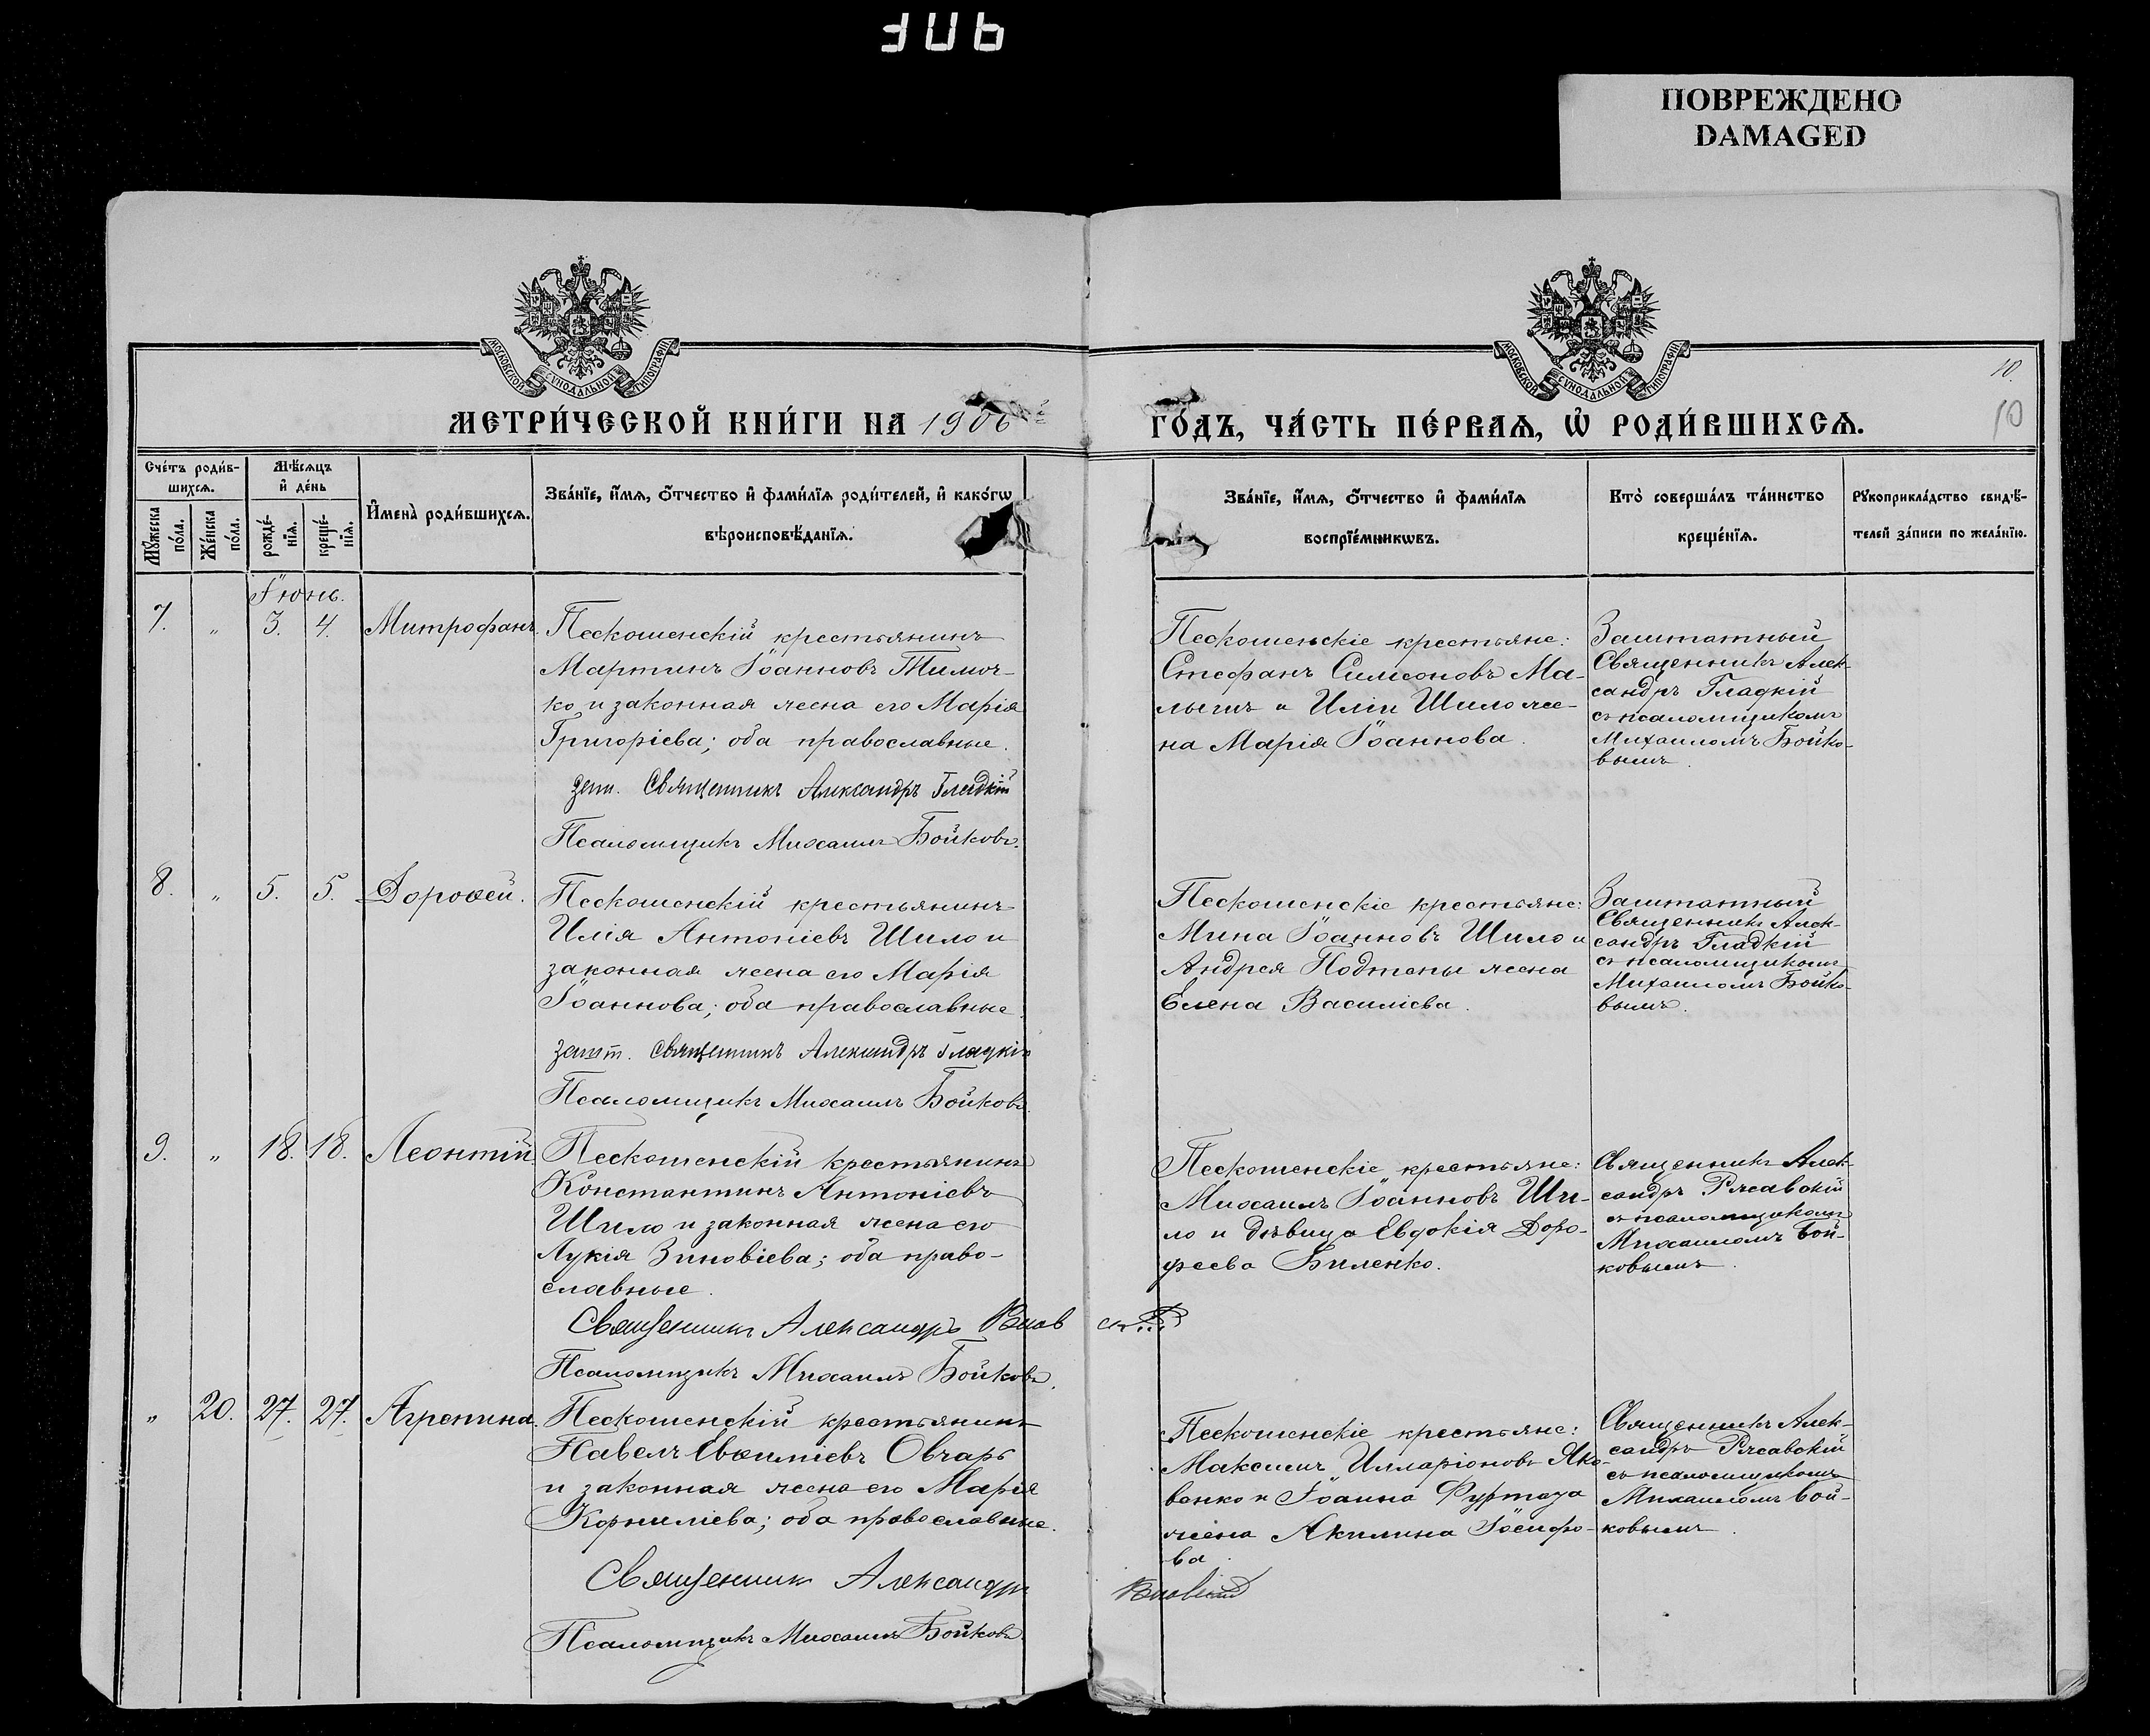 ПОВРЕЖДЕНО
DAMAGED
МОСКОВСКОЙ СѴНОДАЛЬНОЙ ТИПОГРАФІИ
МОСКОВСКОЙ СѴНОДАЛЬНОЙ ТИПОГРАФІИ
10.
10
МЕТРИ́ЧЕСКОЙ КНИ́ГИ НА 1906 ГО́ДЪ, ЧА́СТЬ ПЕ́РВАѦ, Ѡ҆ РОДИ́ВШИХСѦ.
Сче́тъ роди́в-
шихсѧ.
Мѣ́сѧцъ
и҆ де́нь
Мꙋ́жеска
по́ла.
Же́нска
по́ла.
рожде́-
нїѧ.
креще́-
нїѧ.
И҆мена̀ роди́вшихсѧ.
Зва́нїе, и҆́мѧ, ѻ҆́тчество и҆ фами́лїѧ роди́телей, и҆ како́гѡ
вѣроисповѣ́данїѧ.
Зва́нїе, и҆́мѧ, ѻ҆́тчество и҆ фами́лїѧ
воспрїе́мникѡвъ.
Кто̀ соверша́лъ та́инство
креще́нїѧ.
Рꙋкоприкла́дство свидѣ́-
телей за́писи по жела́нїю.
Іюнь.
7. " 3. 4. Митрофанъ.
Пескошенскій крестьянинъ
Мартинъ Іоанновъ Тимоч-
ко и законная жена его Марія
Григоріева; оба православные.
Священникъ Александръ Гладкій
Псаломщикъ Михаилъ Бойковъ.
Пескошенскіе крестьяне:
Стефанъ Симеоновъ Ма-
лыгинъ и Иліи Шило же-
на Марія Іоаннова.
Заштатный
Священникъ Алек-
сандръ Гладкій
съ псаломщикомъ
Михаиломъ Бойко-
вымъ.
8. " 5. 5. Дороѳей.
Пескошенскій крестьянинъ
Илія Антоніевъ Шило и
законная жена его Марія
Іоаннова; оба православные.
зашт. священникъ Александръ Гладкій
Псаломщикъ Михаилъ Бойковъ.
Пескошенскіе крестьяне:
Мина Іоанновъ Шило и
Андрея Подтепы жена
Елена Василіева.
Заштатный
Священникъ Алек-
сандръ Гладкій
съ псаломщикомъ
Михаиломъ Бойко-
вымъ.
9. " 18. 18. Леонтій.
Пескошенскій крестьянинъ
Константинъ Антоніевъ
Шило и законная жена его
Лукія Зиновіева; оба право-
славные.
Священникъ Александръ
Псаломщикъ Михаилъ Бойковъ.
Пескошенскіе крестьяне:
Михаилъ Іоанновъ Ши-
ло и дѣвица Евдокія Доро-
феева Биленко.
Священникъ Алек-
сандръ Ржавскій
съ псаломщикомъ
Михаиломъ Бой-
ковымъ.
" 20. 27. 27. Агрепина.
Пескошенскій крестьянинъ
Павелъ Евѳиміевъ Овчаръ
и законная жена его Марія
Корниліева; оба православные.
Священникъ Александръ
Псаломщикъ Михаилъ Бойковъ.
Пескошенскіе крестьяне:
Максимъ Илларіоновъ Яко-
венко и Іоанна Фуртаха
жена Акилина Іосифо-
ва.
Священникъ Алек-
сандръ Ржавскій
съ псаломщикомъ
Михаиломъ Бой-
ковымъ.